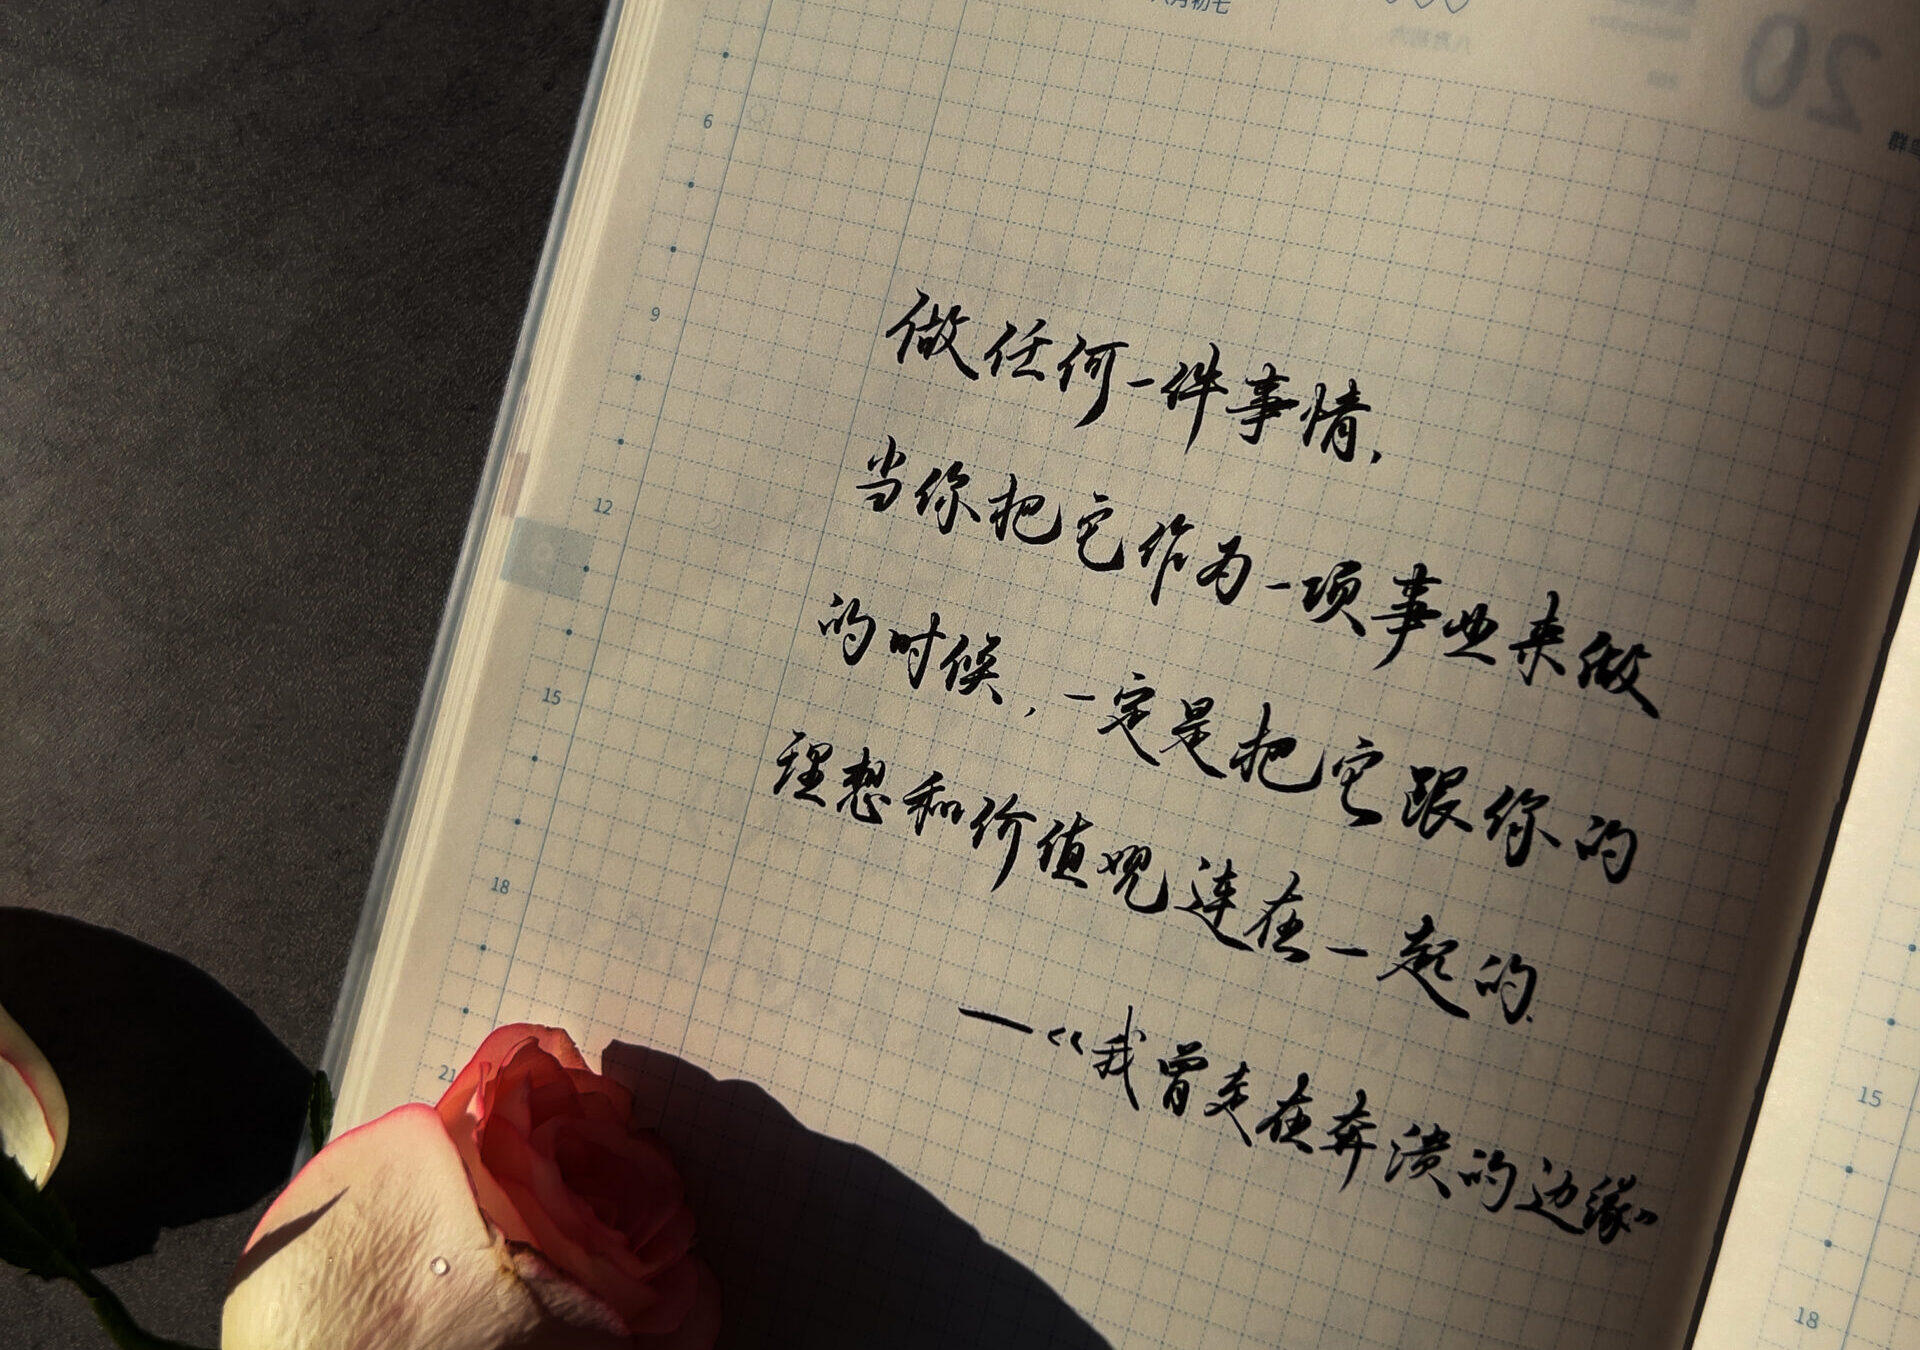 八月初七
6
9
12
15
18
21
做任何一件事情，
当你把它作为一项事业来做
的时候，一定是把它跟你的
理想和价值观连在一起的.
—《我曾走在奔溃的边缘》
20
15
18